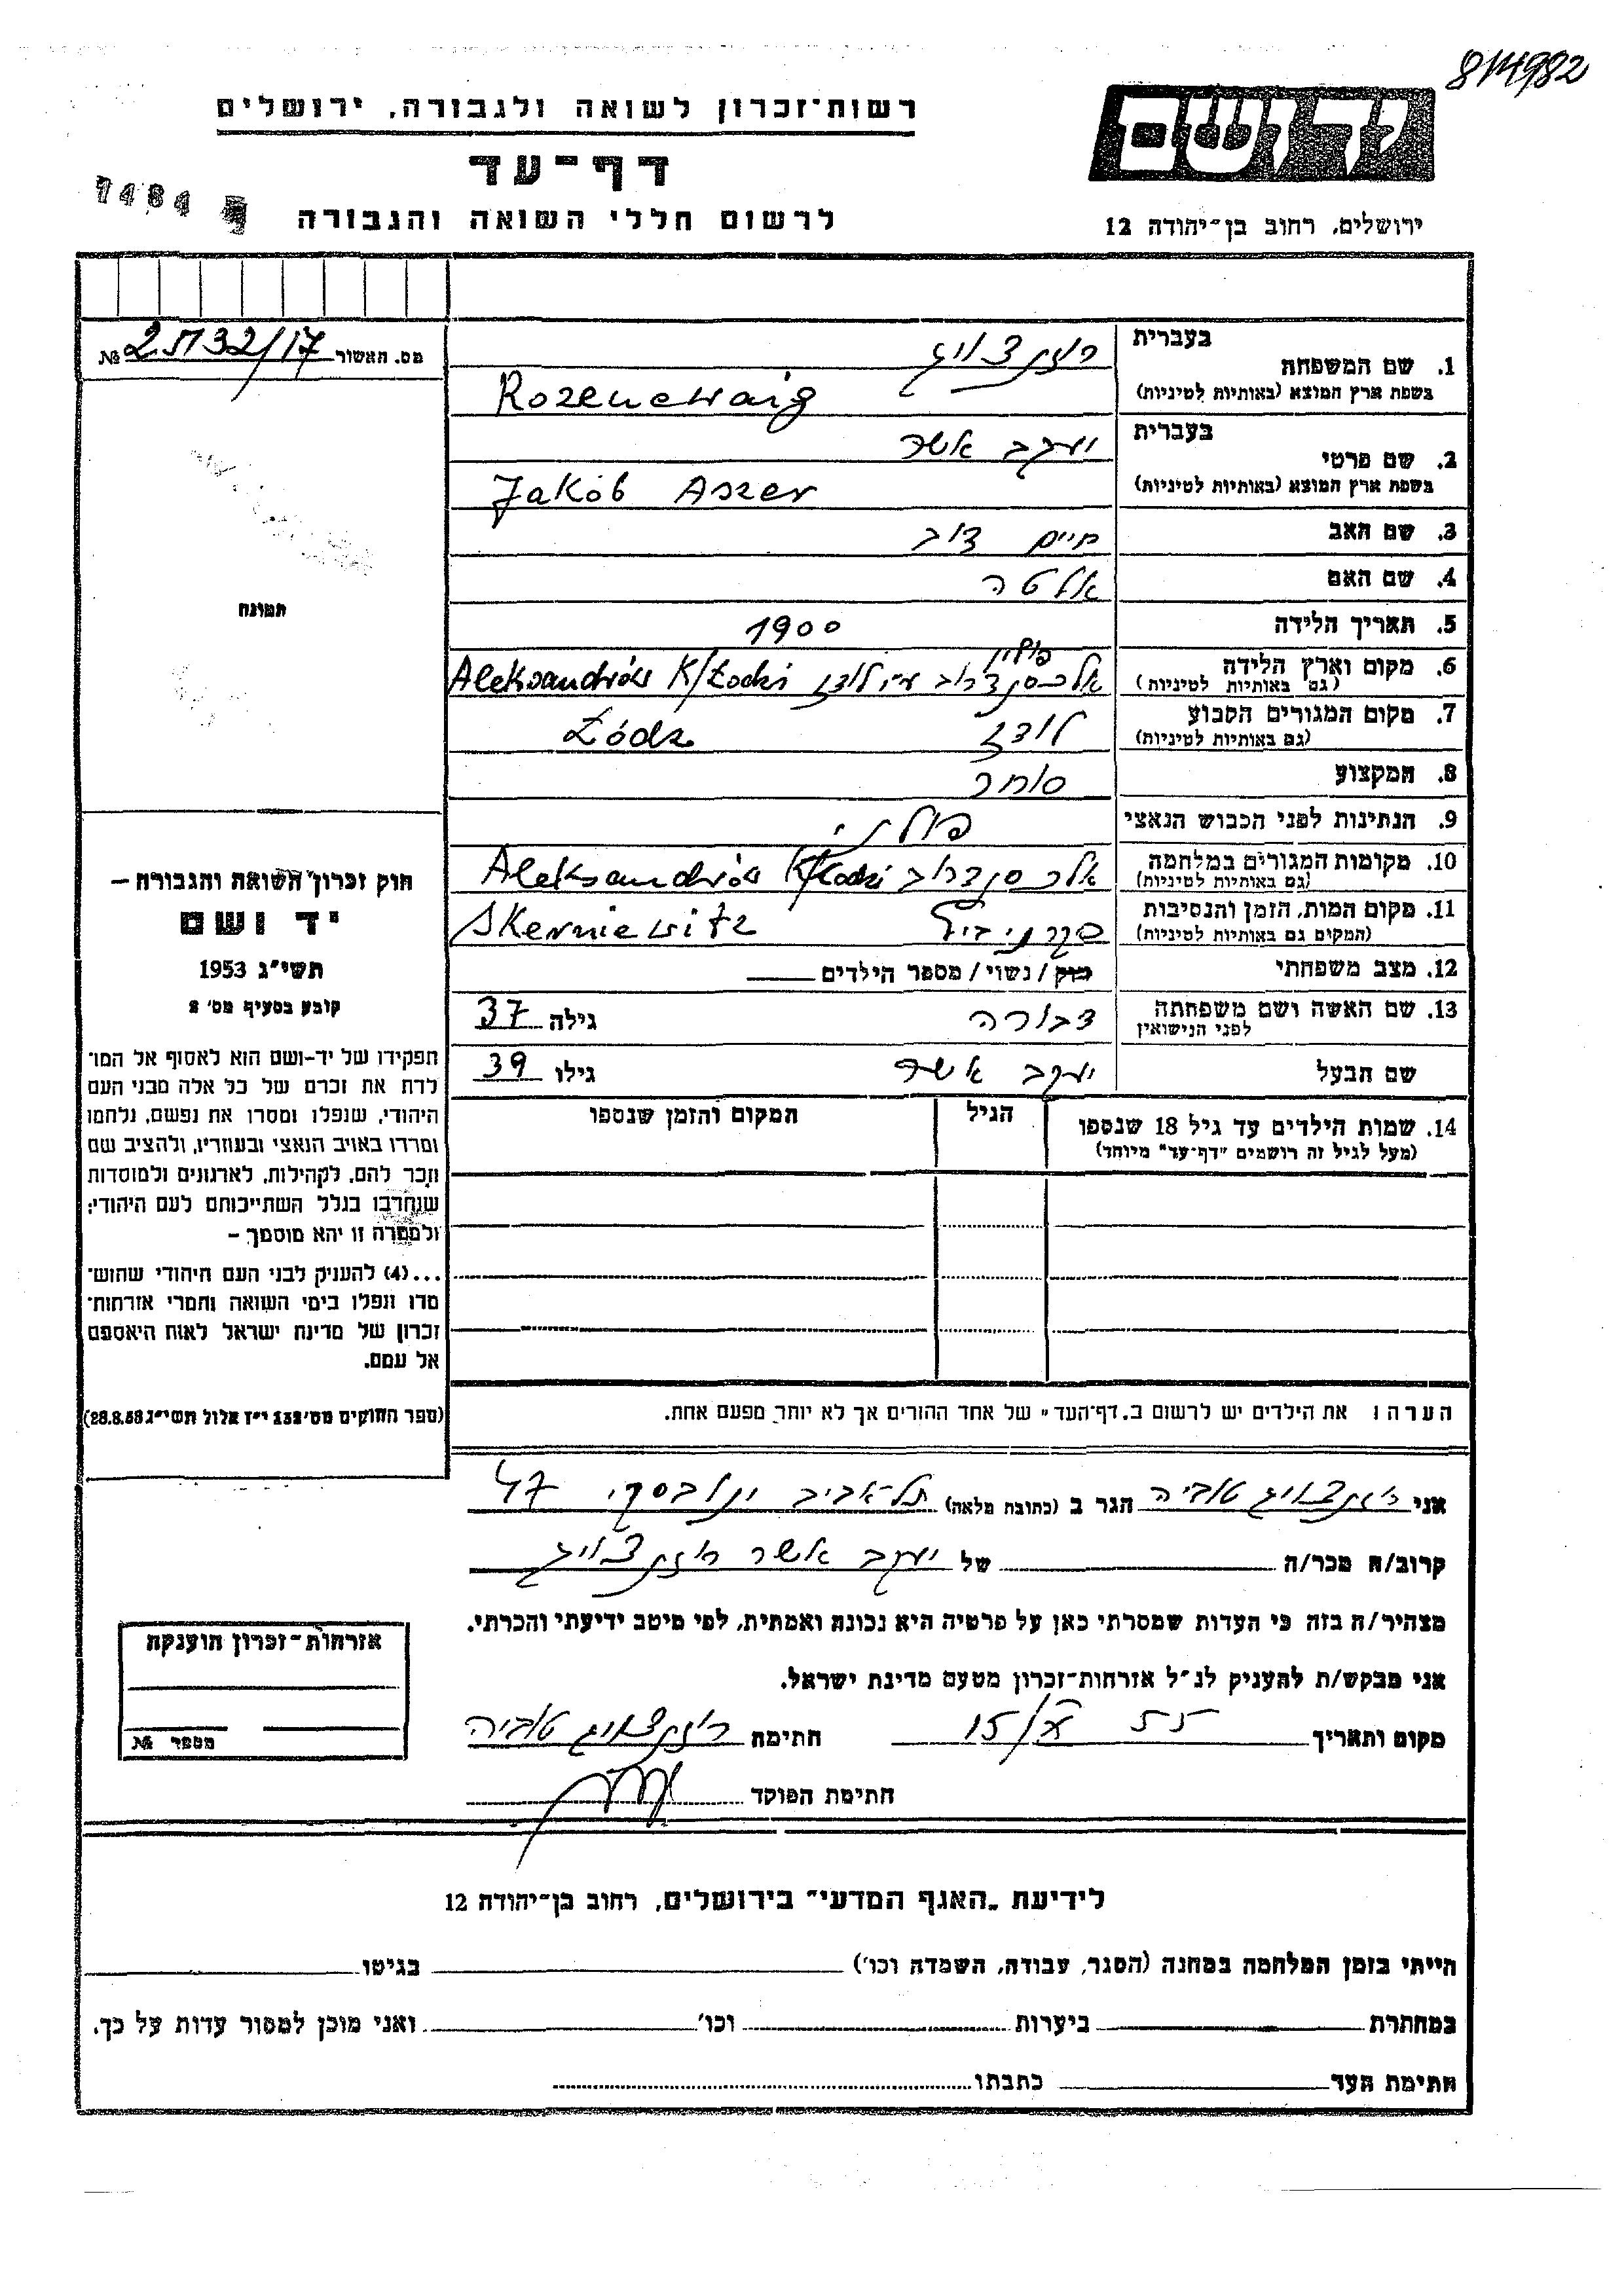 814982
יד ושם
רשות־זכרון לשואה ולגבורה, ירושלים
דף־עד
לרשום חללי השואה והגבורה
ירושלים, רחוב בן־יהודה 12
מס. האשור №
תמונה
חוק זכרון השואה והגבורה –
יד ושם
תשי״ג 1953
קובע בסעיף מס׳ 2
תפקידו של יד-ושם הוא לאסוף אל המו־
לדת את זכרם של כל אלה מבני העם
היהודי, שנפלו ומסרו את נפשם, נלחמו
ומרדו באויב הנאצי ובעוזריו, ולהציב שם
וזכר להם, לקהילות, לארגונים ולמוסדות
שנחרבו בגלל השתייכותם לעם היהודי;
ולמטרה זו יהא מוסמך –
...(4) להעניק לבני העם היהודי שהוש־
מדו ונפלו בימי השואה והמרי אזרחות־
זכרון של מדינת ישראל לאות היאספם
אל עמם.
(ספר החוקים מס׳ 132 י״ז אלול תשי״ג 28.8.53)
1. שם המשפחה בעברית רוזנצויג
בשפת ארץ המוצא (באותיות לטיניות) Rozencwaig
2. שם פרטי בעברית יעקב אשר
בשפת ארץ המוצא (באותיות לטיניות) Jakób Aszer
3. שם האב חיים דוב
4. שם האם אלטה
5. תאריך הלידה 1900
6. מקום וארץ הלידה (גם באותיות לטיניות) פולין אלכסנדרוב ע״י לודז Aleksandrów K/Łodzi
7. מקום המגורים הקבוע (גם באותיות לטיניות) לודז Łódz
8. המקצוע סוחר
9. הנתינות לפני הכבוש הנאצי פולנית
10. מקומות המגורים במלחמה (גם באותיות לטיניות) אלכסנדרוב Aleksandrów K/Łodzi
11. מקום המות, הזמן והנסיבות (המקום גם באותיות לטיניות) Skerniewitz
12. מצב משפחתי רוק / נשוי / מספר הילדים
13. שם האשה ושם משפחתה לפני הנישואין דבורה גילה 37
שם הבעל יעקב אשר גילו 39
14. שמות הילדים עד גיל 18 שנספו הגיל המקום והזמן שנספו
(מעל לגיל זה רושמים "דף־עד" מיוחד)
הערה: את הילדים יש לרשום ב„דף־העד" של אחד ההורים אך לא יותר מפעם אחת.
אני רוזנצויג טוביה הגר ב (כתובת מלאה) תל־אביב 47
קרוב/ה מכר/ה של יעקב אשר רוזנצויג
מצהיר/ה בזה כי העדות שמסרתי כאן על פרטיה היא נכונה ואמתית, לפי מיטב ידיעתי והכרתי.
אני מבקש/ת להעניק לנ״ל אזרחות־זכרון מטעם מדינת ישראל.
מקום ותאריך חתימה רוזנצויג טוביה
חתימת הפוקד
אזרחות־זכרון הוענקה
מספר №
לידיעת „האגף המדעי" בירושלים, רחוב בן־יהודה 12
הייתי בזמן המלחמה במחנה (הסגר, עבודה, השמדה וכו׳) בגיטו
במחתרת ביערות וכו׳ ואני מוכן למסור עדות על כך.
חתימת העד כתבתו